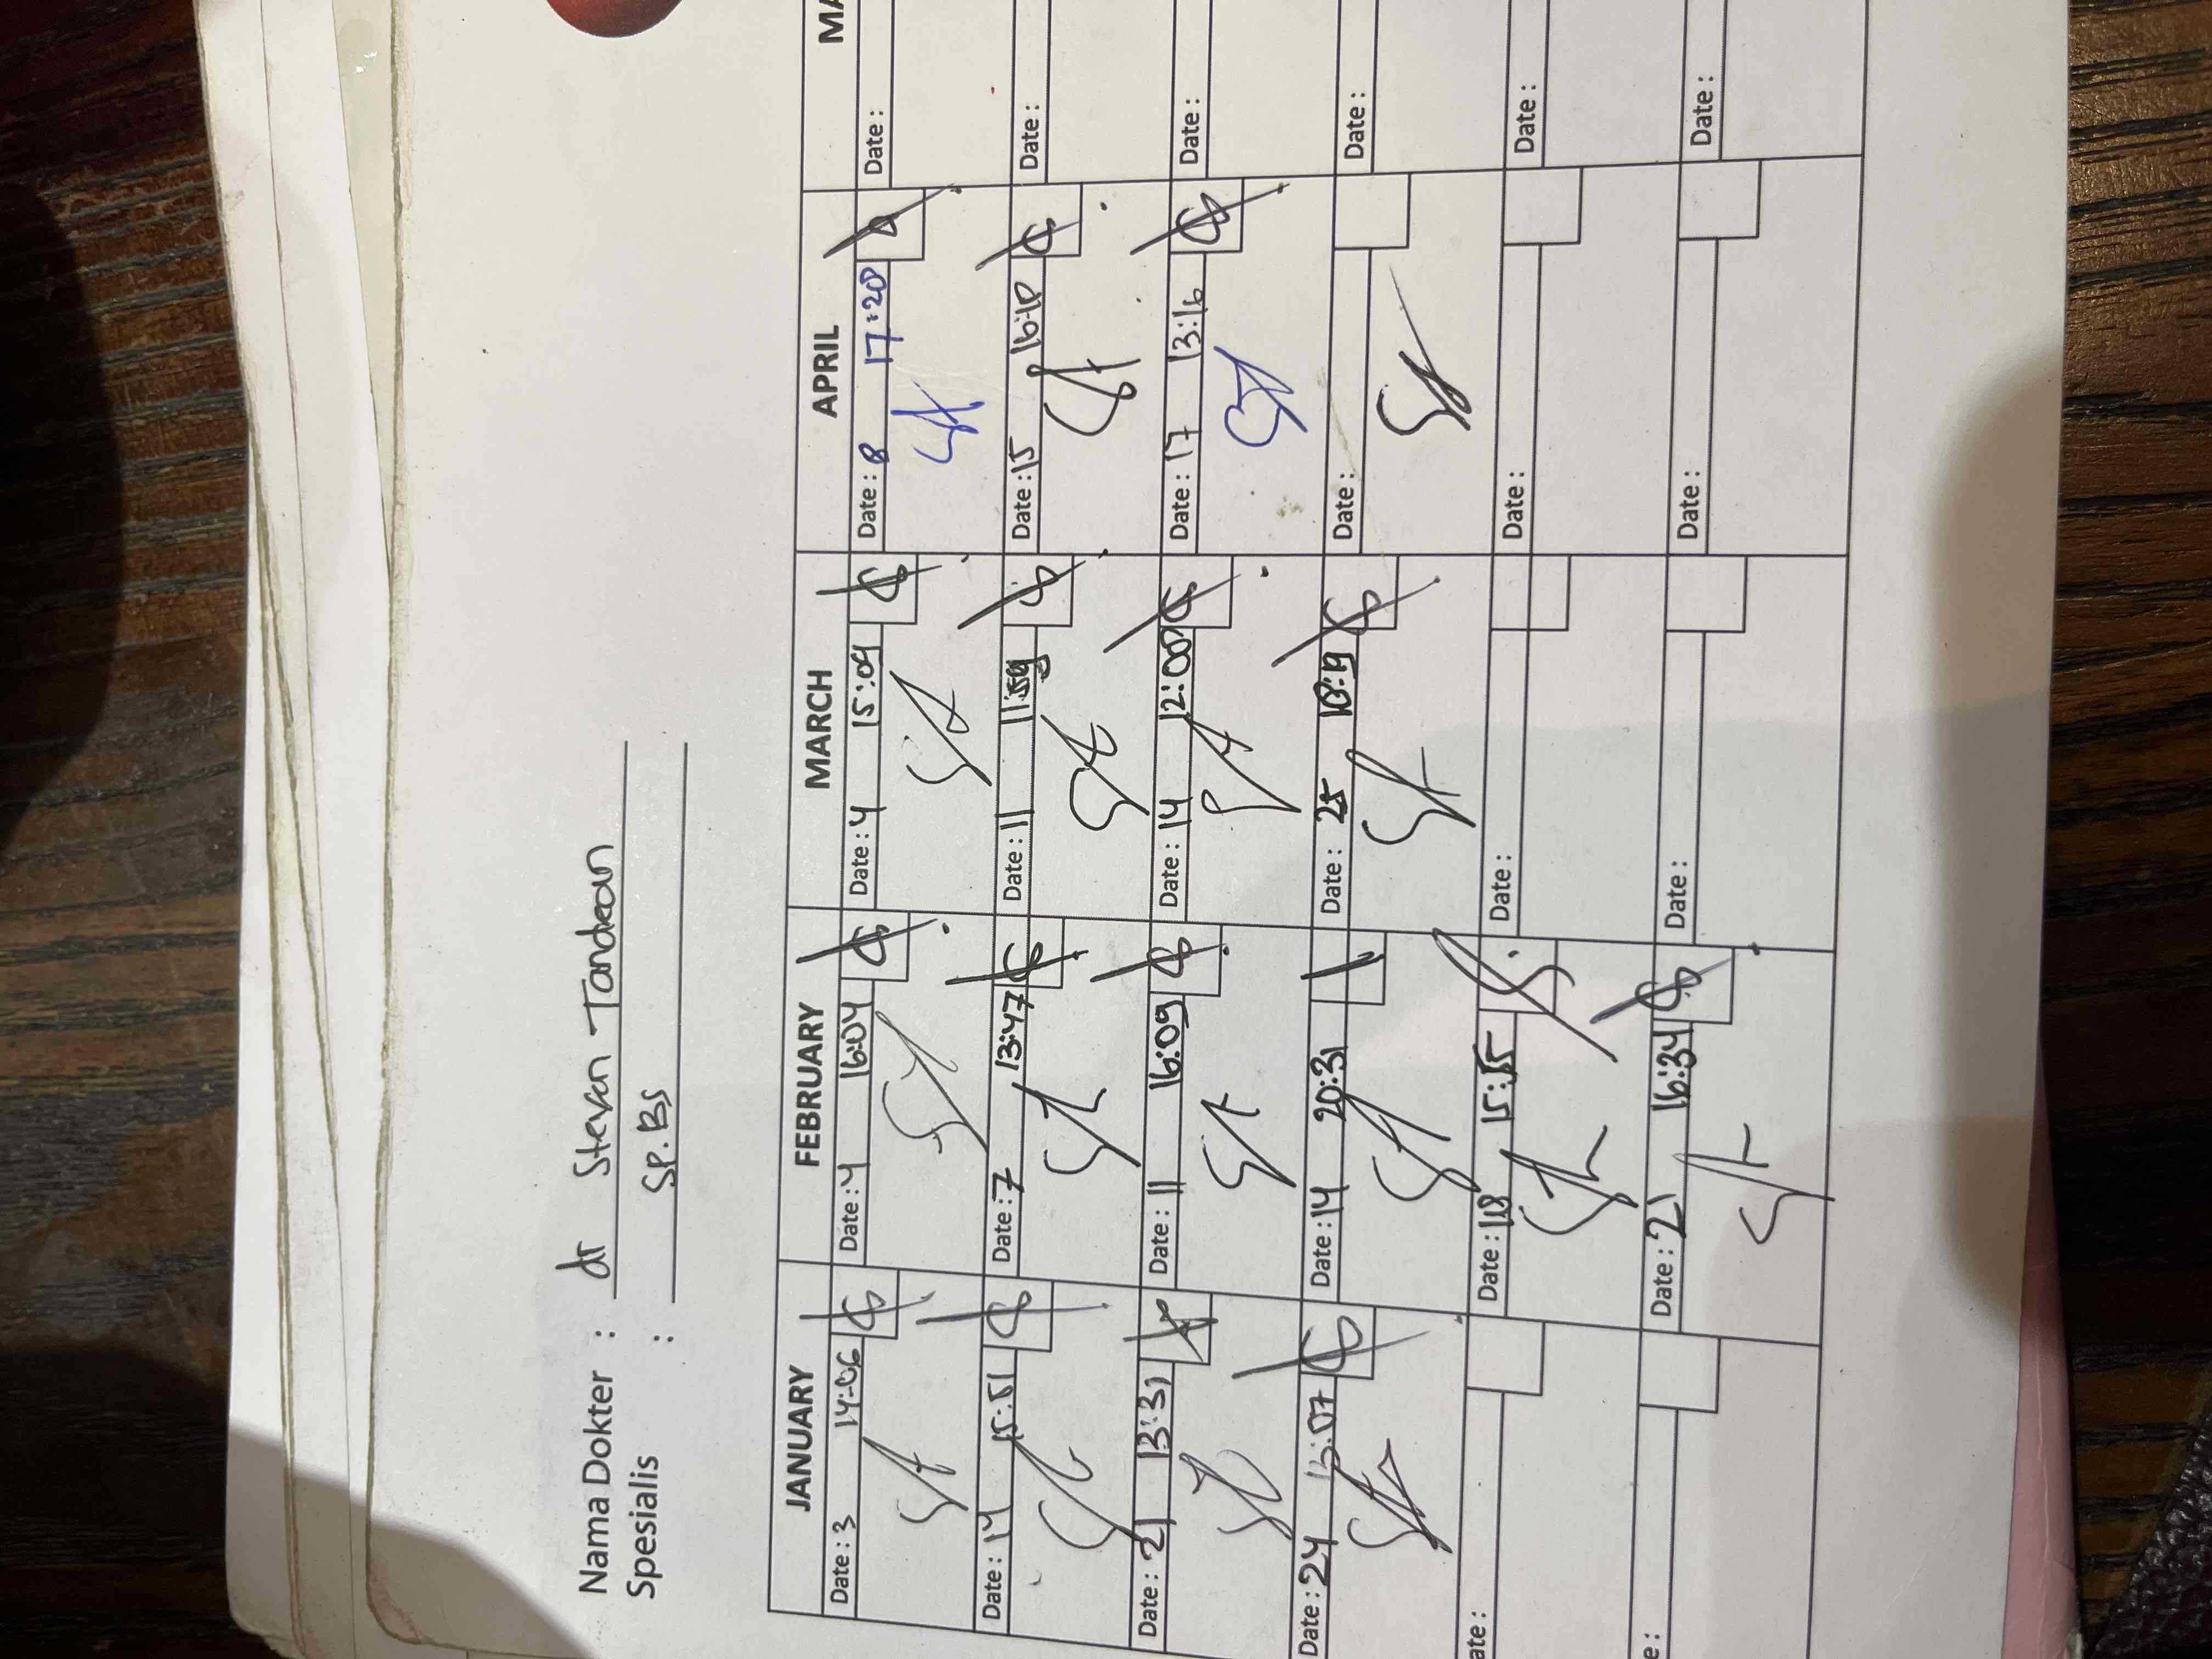 Nama Dokter : dr Steven Tandean
Spesialis : SP.BS
JANUARY FEBRUARY MARCH APRIL
Date : 3 14:06 Date : 4 16:04 Date : 4 15:09 Date : 8 17:20 Date :
Date : 14 15:51 Date : 7 13:47 Date : 11 11:59 Date : 15 Date :
Date : 21 13:31 Date : 11 16:09 Date : 14 12:00 Date : 17 13:16 Date :
Date : 24 Date : 14 20:31 Date : 25 Date : Date :
Date : 18 15:55 Date : Date : Date :
Date : 21 16:34 Date : Date : Date :